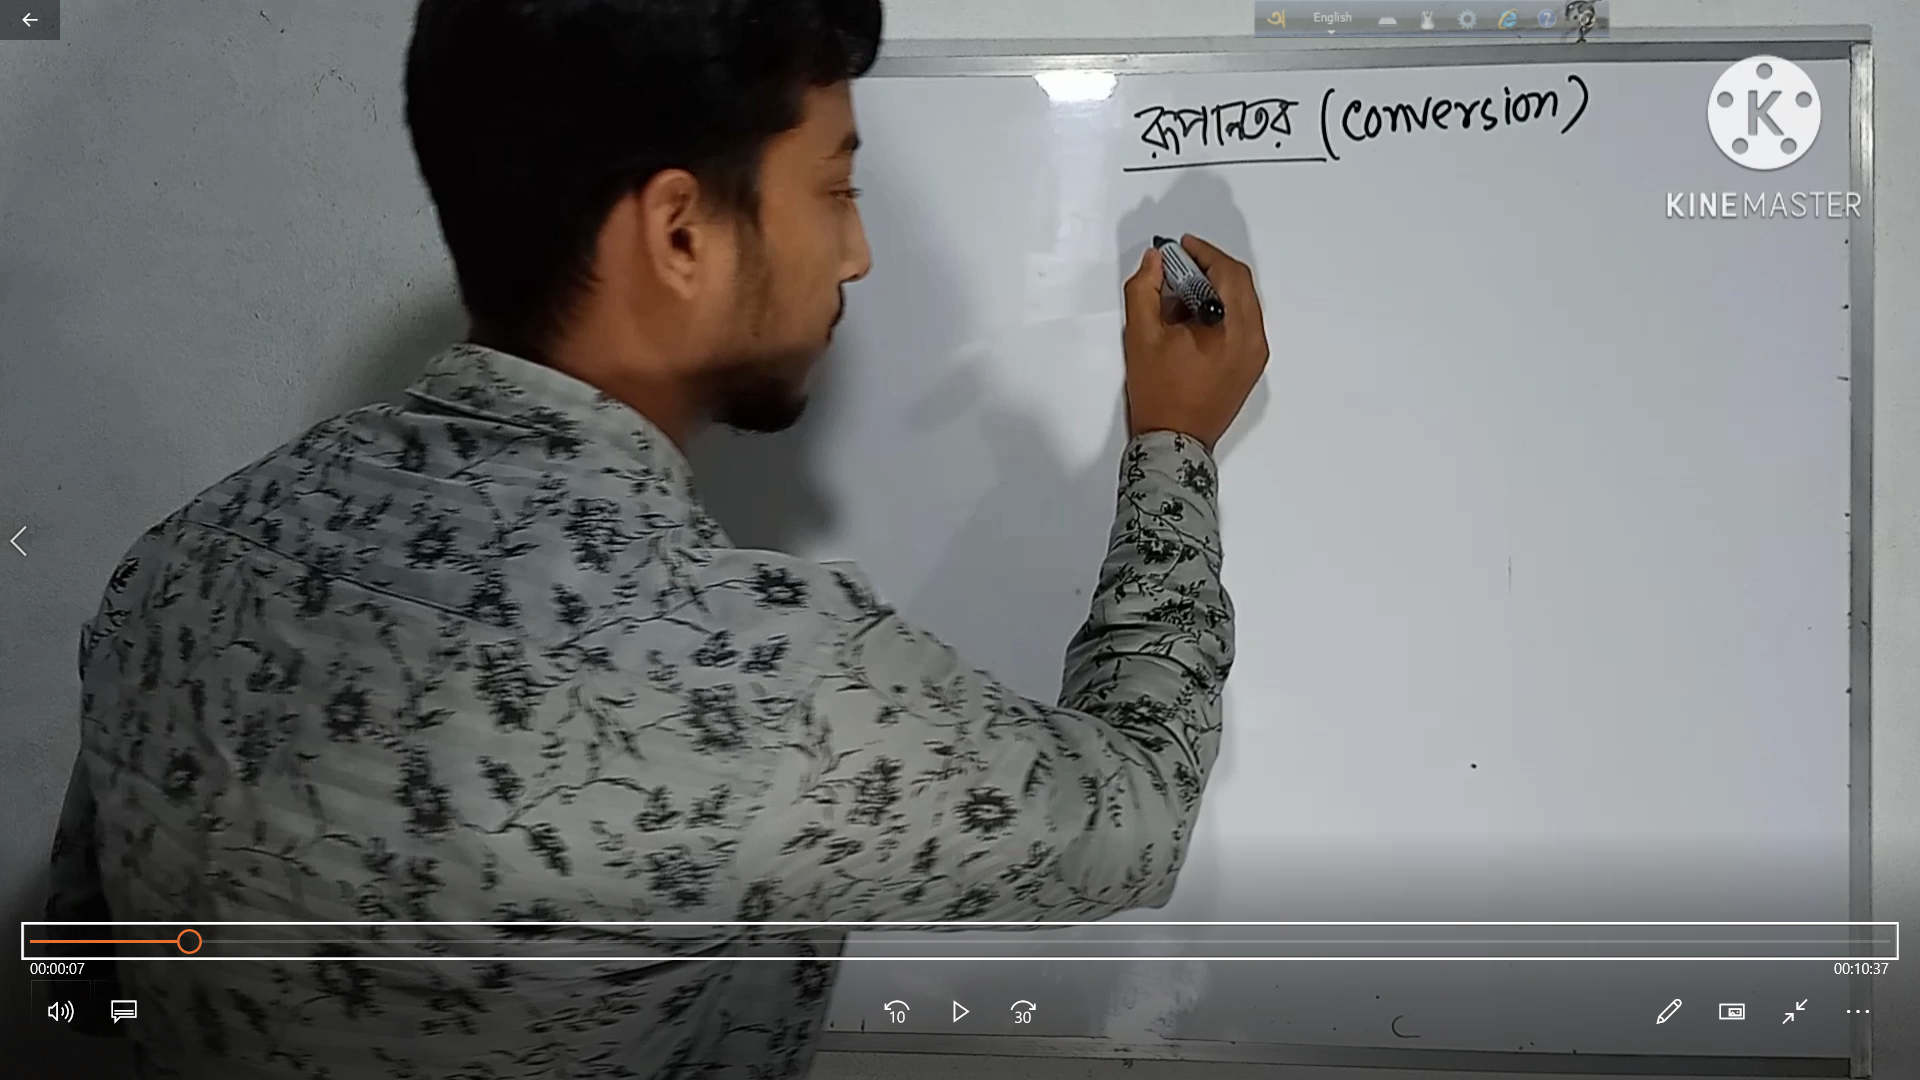 English
রূপান্তর (conversion)
K
KINEMASTER
00:00:07
00:10:37
10
30